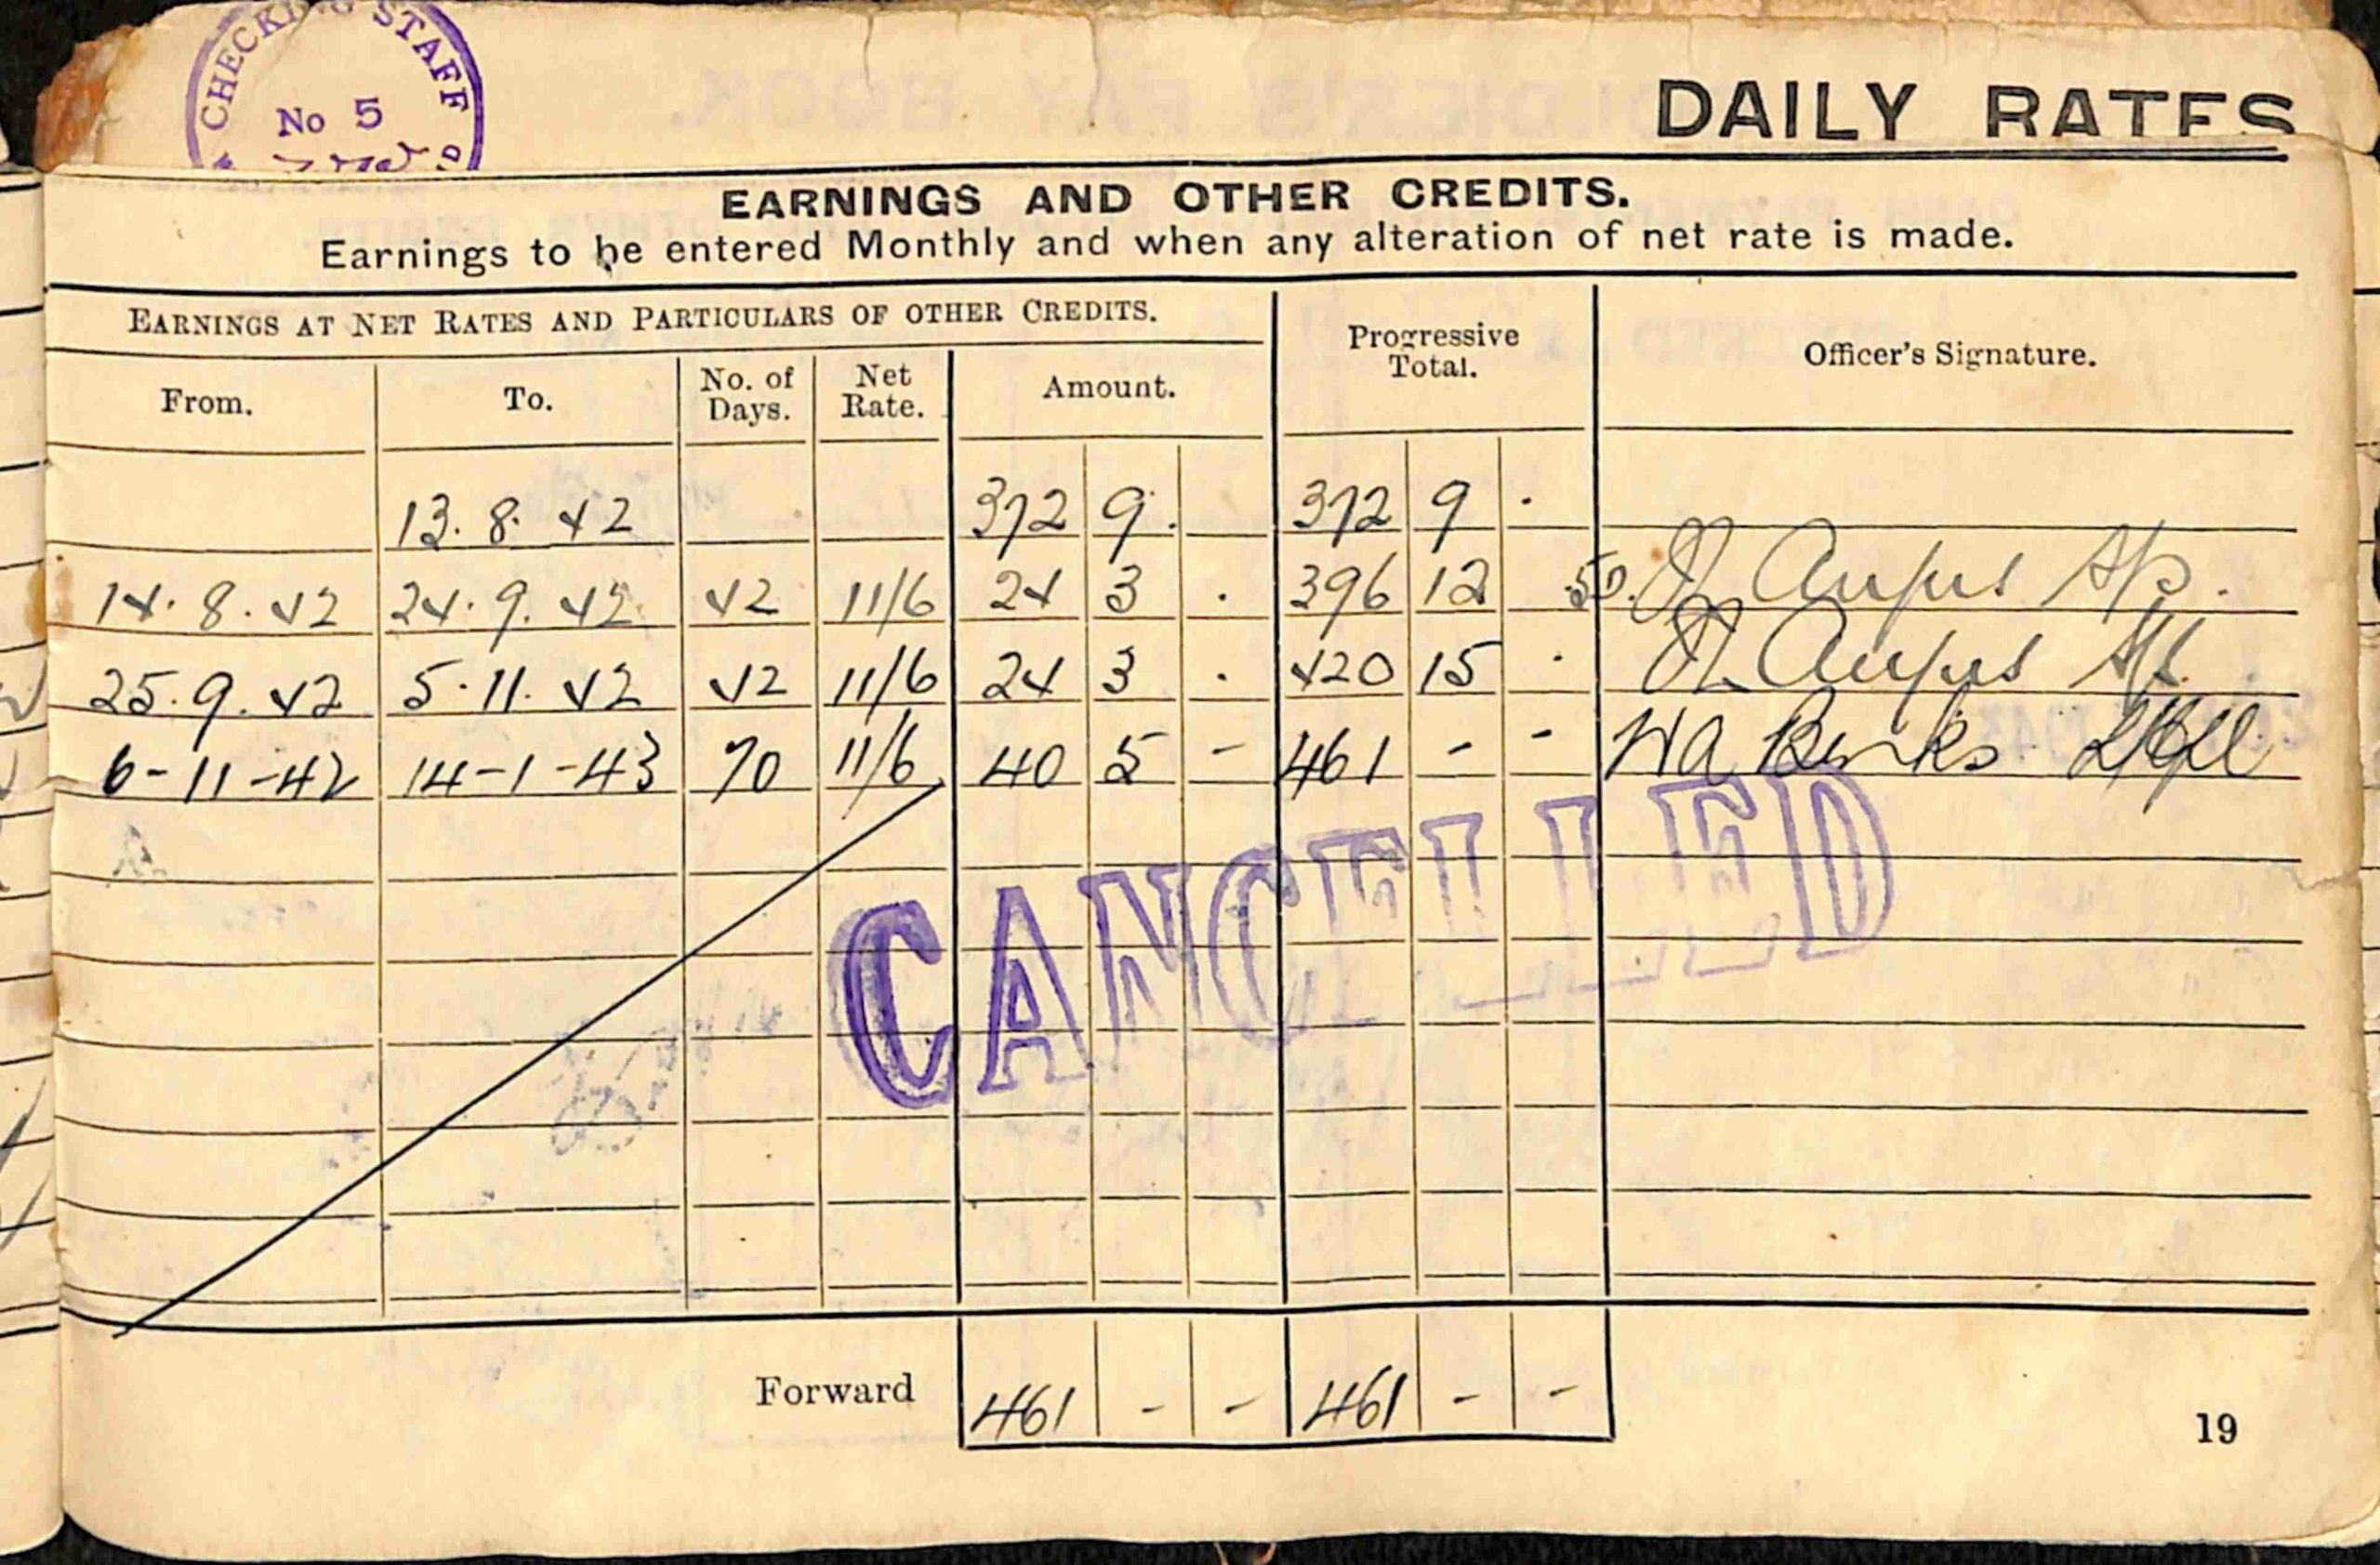 CHECKING STAFF
No 5
DAILY RATES
EARNINGS AND OTHER CREDITS.
Earnings to be entered Monthly and when any alteration of net rate is made.
EARNINGS AT NET RATES AND PARTICULARS OF OTHER CREDITS.
Progressive Total.
Officer's Signature.
From. To. No. of Days. Net Rate. Amount.
13. 8. 42 372 9 . 372 9 .
14. 8. 42 24. 9. 42 42 11/6 24 3 . 396 12
25. 9. 42 5. 11. 42 42 11/6 24 3 . 420 15 .
6-11-42 14-1-43 70 11/6 40 5 - 461 - - WA
CANCELLED
Forward 461 - - 461 - -
19